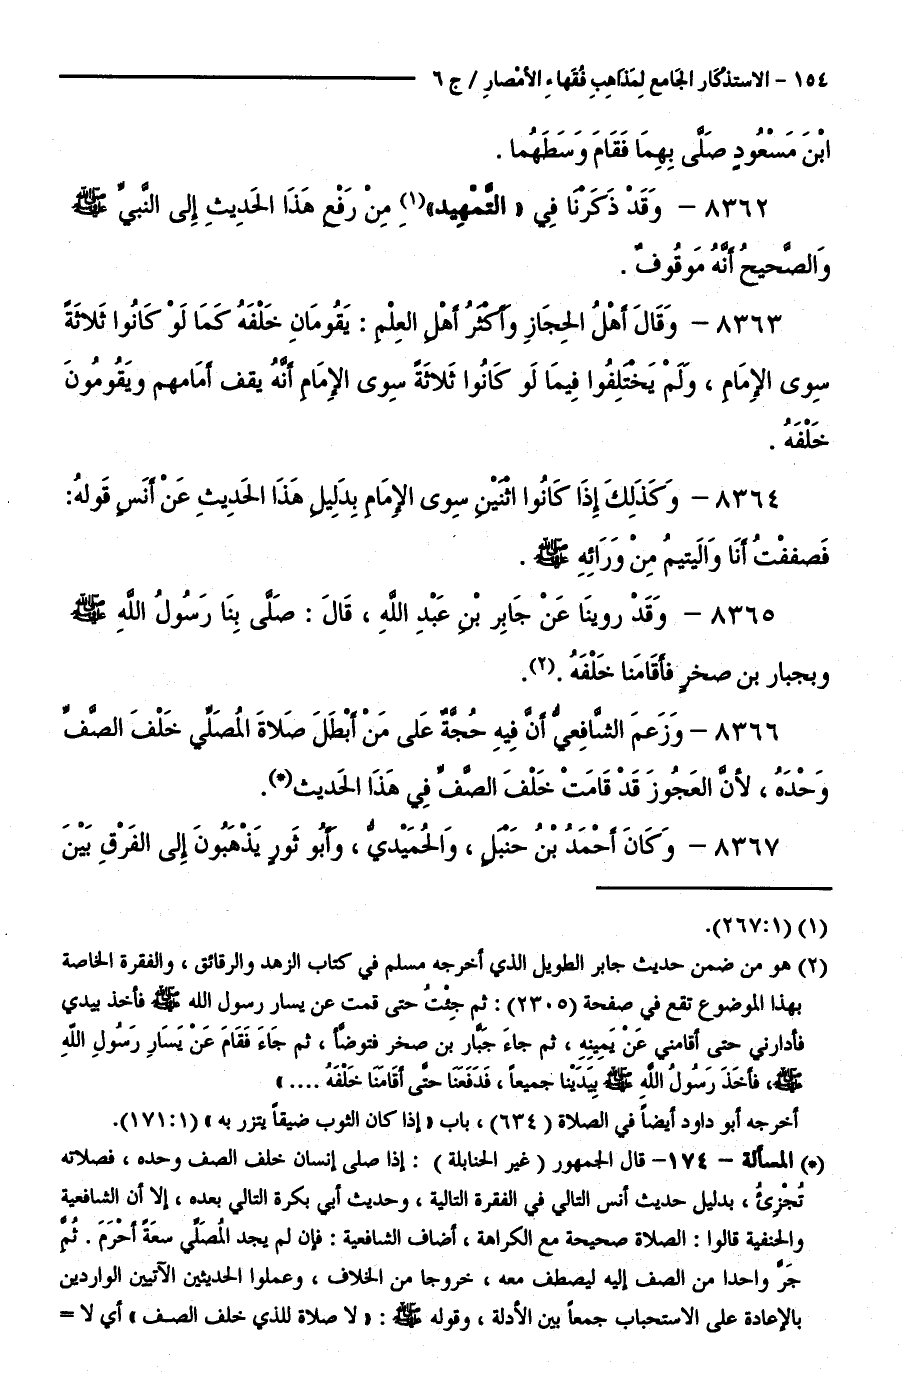 ١٥٤ - الاستذكار الجامع لِمَذاهِبِ فُقَهاءِ الأمْصارِ / ج ٦
ابْنَ مَسْعُودٍ صَلَّى بِهِمَا فَقَامَ وَسَطَهُما .
٨٣٦٢ - وَقَدْ ذَكَرْنَا فِي « التَّمْهِيد»(١) مِنْ رَفْعِ هَذَا الحَدِيثِ إِلى النَّبيِّ ﷺ
وَالصَّحيحُ أَنَّهُ مَوقُوفٌ .
٨٣٦٣ - وَقَالَ أَهْلُ الحِجَازِ وأَكْثَرُ أهْلِ العِلْمِ : يَقُومَانِ خَلْفَهُ كَمَا لَوْ كَانُوا ثَلاثَةً
سِوى الإِمَامِ ، وَلَمْ يَخْتَلِفُوا فِيمَا لَو كَانُوا ثَلاثَةً سِوى الإِمَامِ أَنَّهُ يقف أمَامهم ويَقُومُونَ
خَلْفَهُ .
٨٣٦٤ - وَكَذَلِكَ إِذَا كَانُوا اثْنَيْنِ سِوى الإِمَامِ بِدَلِيلِ هَذَا الحَدِيثِ عَنْ أَنَسٍ قَولهُ:
فَصففْتُ أنَا وَاليَتيمُ مِنْ وَرَائِهِ ﷺ .
٨٣٦٥ - وَقَدْ روينَا عَنْ جَابِرِ بْنِ عَبْدِ اللَّهِ ، قَالَ : صَلَّى بِنَا رَسُولُ اللَّهِ ﷺ
وبجبار بن صخرٍ فأقَامَنا خَلْفَهُ .(٢).
٨٣٦٦ - وَزَعمَ الشَّافِعيُّ أَنَّ فِيهِ حُجَّةٌ عَلى مَنْ أبْطَلَ صَلاةَ المُصَلِّي خَلْفَ الصَّفِّ
وَحْدَهُ ، لأنَّ العَجُوزَ قَدْ قَامَتْ خَلْفَ الصَّفِّ فِي هَذَا الحَديث(*).
٨٣٦٧ - وَكَانَ أحْمَدُ بْنُ حَنْبَلٍ ، وَالحُمَيْدِيُّ ، وَأبُو ثَورٍ يَذْهَبُونَ إِلى الفَرْقِ بَيْنَ
(١) (٢٦٧:١).
(٢) هو من ضمن حديث جابر الطويل الذي أخرجه مسلم في كتاب الزهد والرقائق ، والفقرة الخاصة
بهذا الموضوع تقع في صفحة (٢٣٠٥) : ثم جِئْتُ حتى قمت عن يسار رسول الله ﷺ فأخذ بيدي
فأدارني حتى أقامني عَنْ يَمِينِهِ ، ثم جاءَ جَبَّار بن صخر فتوضأ ، ثم جَاءَ فَقَامَ عَنْ يَسَارِ رَسُولِ اللَّهِ
ﷺ، فأخَذَ رَسُولُ اللَّهِ ﷺ بِيَدَيْنا جميعاً ، فَدَفَعَنَا حتَّى أقَامَنَا خَلْفَهُ .... »
أخرجه أبو داود أيضاً في الصلاة ( ٦٣٤) ، باب « إذا كان الثوب ضيقاً يتزر به » (١٧١:١).
(*) المسألة - ١٧٤- قال الجمهور ( غير الحنابلة ) : إذا صلى إنسان خلف الصف وحده ، فصلاته
تُجْزِئُ ، بدليل حديث أنس التالي في الفقرة التالية ، وحديث أبي بكرة التالي بعده ، إلا أن الشافعية
والحنفية قالوا : الصلاة صحيحة مع الكراهة ، أضاف الشافعية : فإن لم يجد المُصَلِّي سعَةً أحْرَمَ . ثُمَّ
جَرَّ واحدا من الصف إليه ليصطف معه ، خروجا من الخلاف ، وعملوا الحديثين الآتيين الواردين
بالإعادة على الاستحباب جمعاً بين الأدلة ، وقوله ﷺ : « لا صلاة للذي خلف الصف » أي لا =